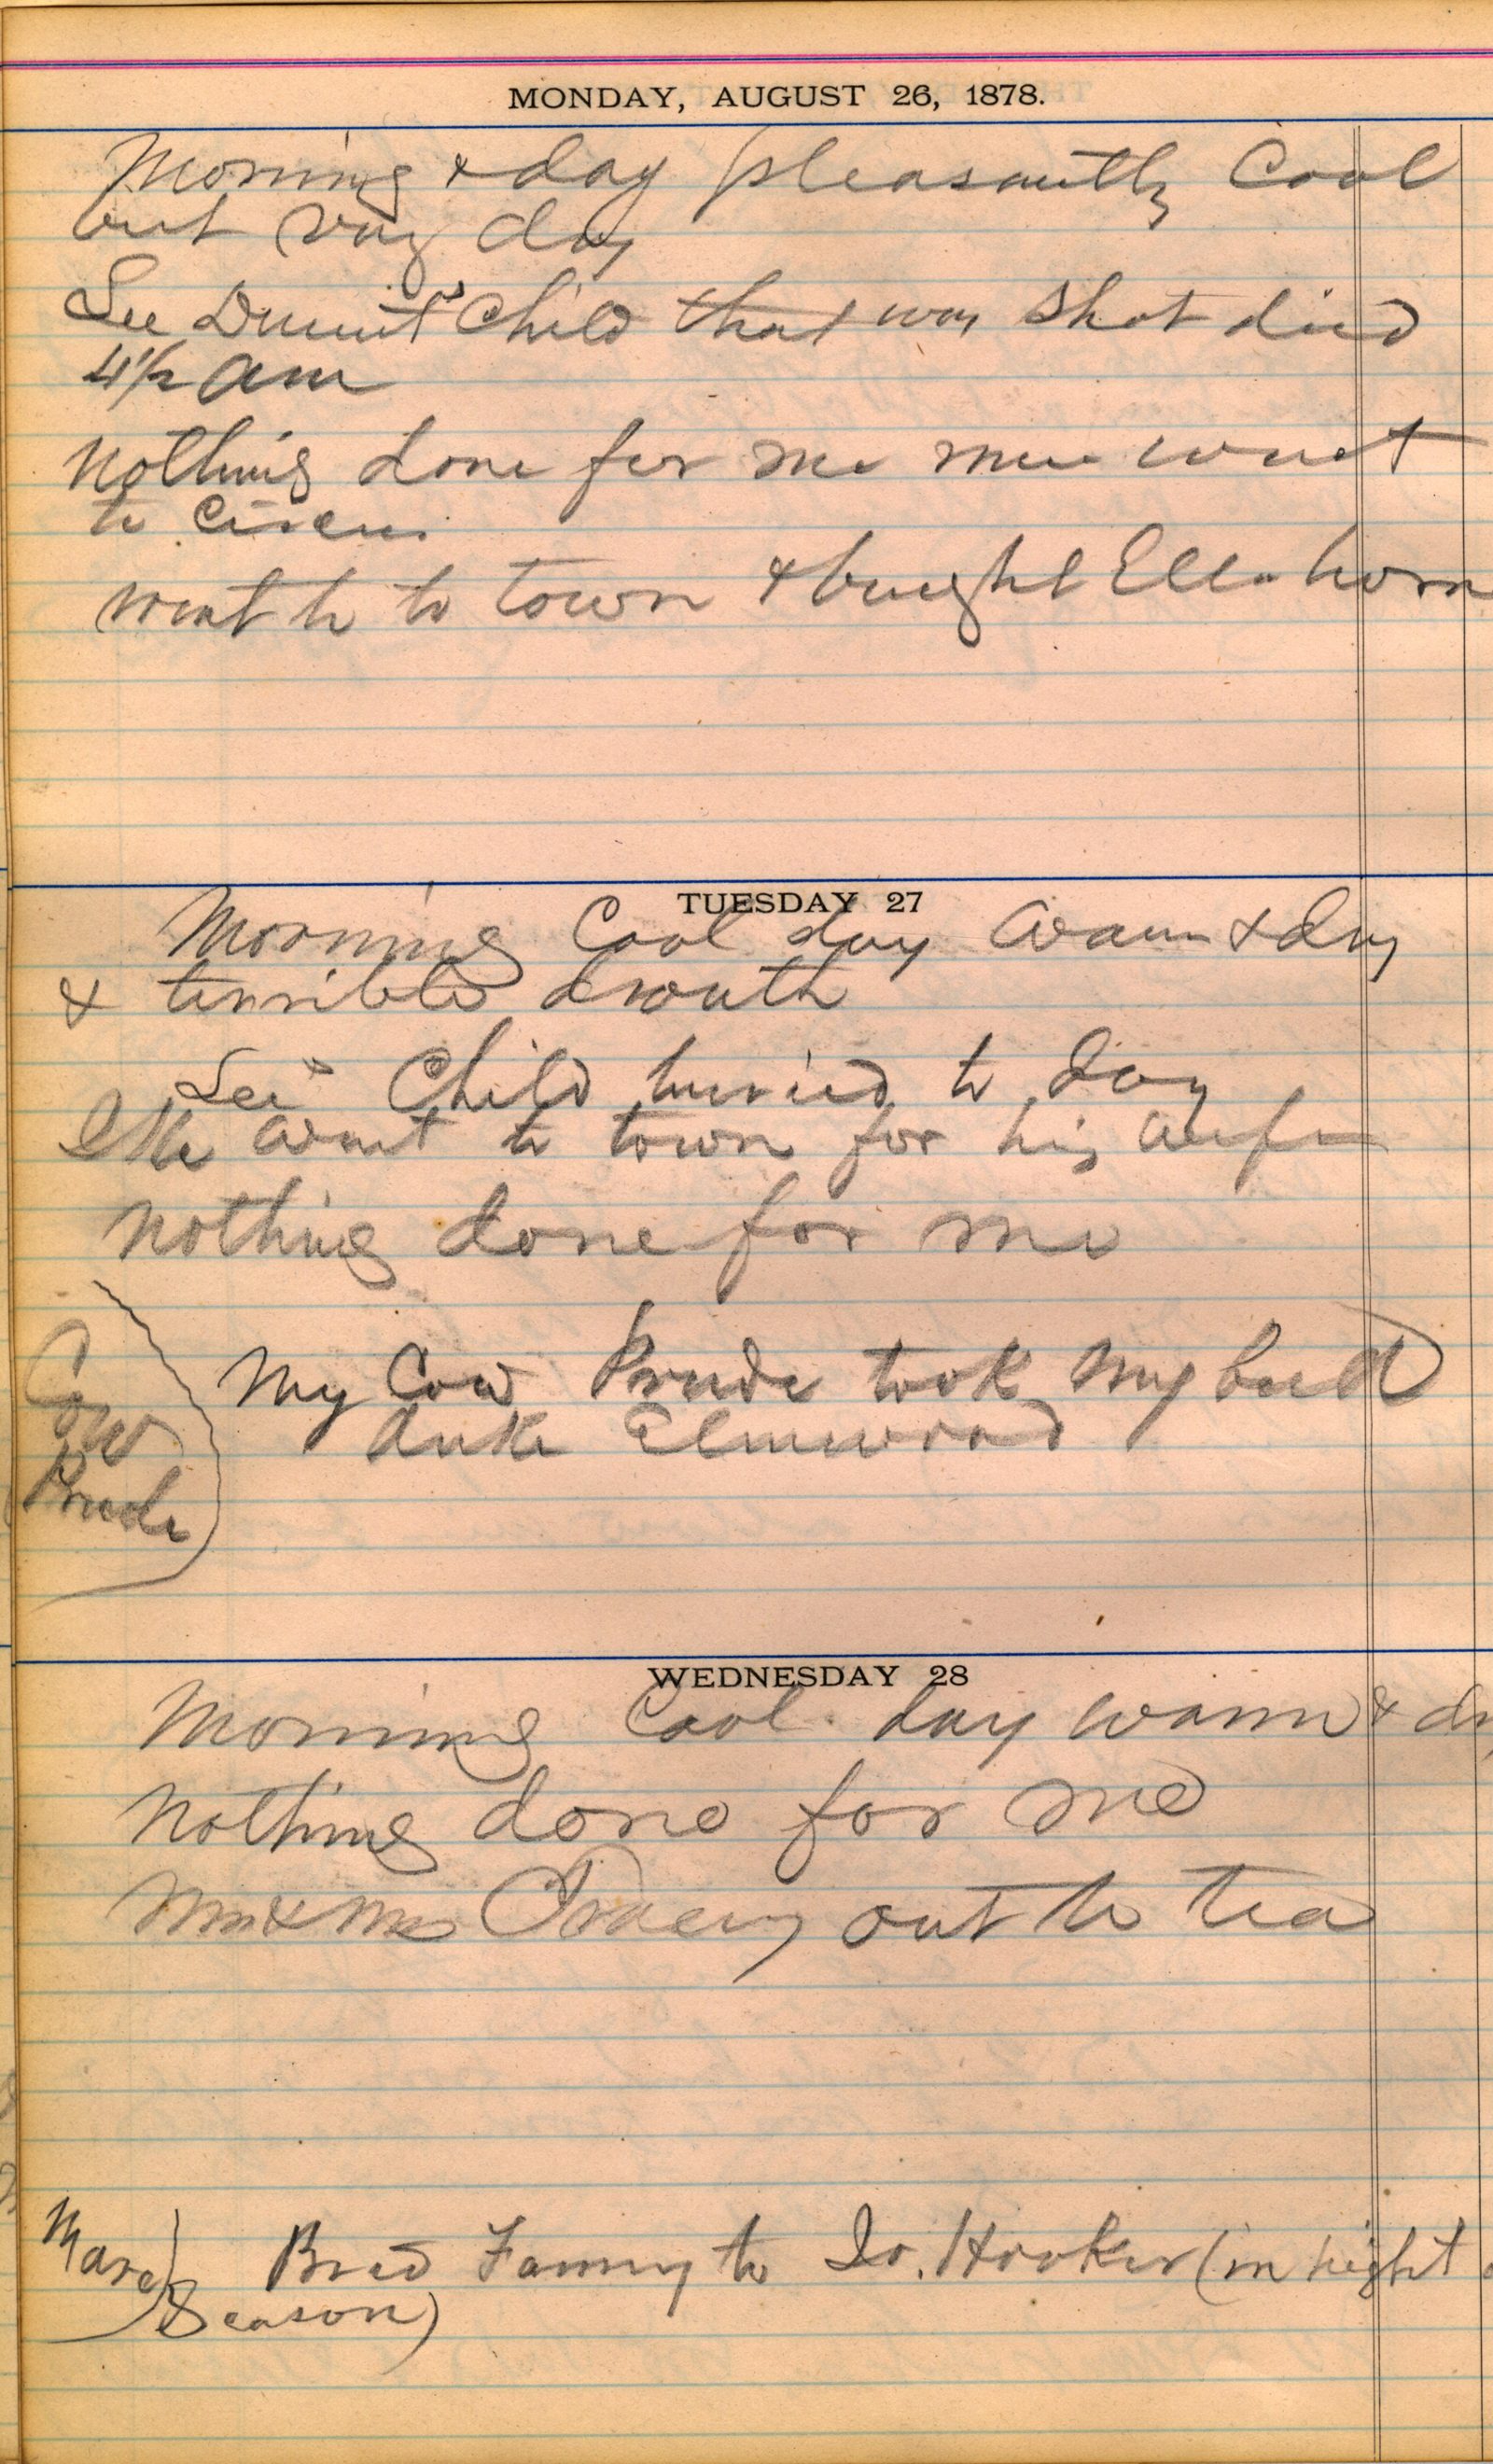 MONDAY, AUGUST 26, 1878.
Morning & day pleasantly Cool
but very dry
Lee Dummit's Child that was shot died
4 1/2 am
nothing done for me men went
to Circus
went to to town & bought Ella home
TUESDAY 27
Morning Cool day warm & dry
& terrible drouth
Lee's Child buried to day
Ike went to town for his wife
nothing done for me
My Cow Prude took my bull
Duke Elmwood
Cow
Prude
WEDNESDAY 28
Morning Cool day warm & dr
nothing done for me
Mr & Mrs Tracy out to tea
Mare Bred Fanny to Jo. Hooker (in hight
Season)